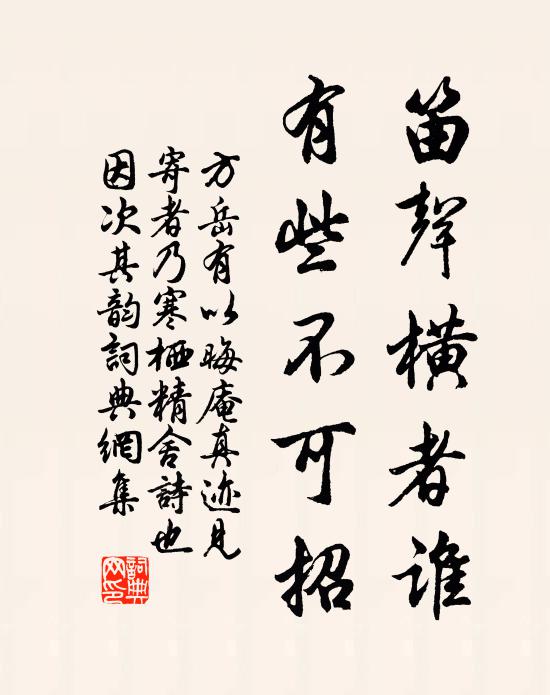 笛聲橫者誰
有些不可招
方岳有以晦庵真迹見
寄者乃寒栖精舍詩也
因次其韵詞典網集
詞典网印